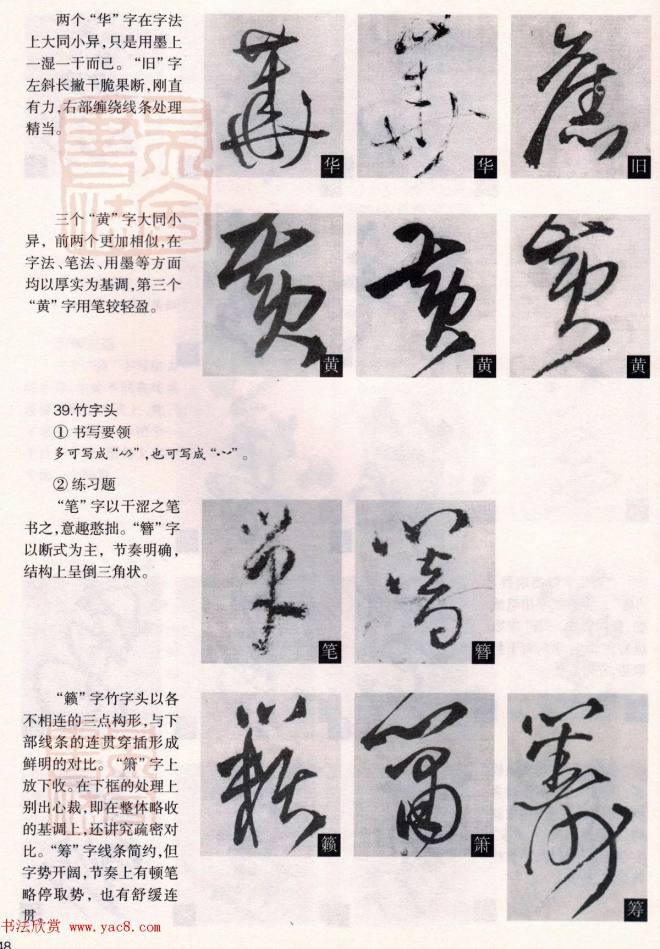 两个“华”字在字法
上大同小异,只是用墨上
一湿一干而已。“旧”字
左斜长撇干脆果断,刚直
有力,右部缠绕线条处理
精当。
华
华
旧
三个“黄”字大同小
异，前两个更加相似,在
字法、笔法、用墨等方面
均以厚实为基调,第三个
“黄”字用笔较轻盈。
黄
黄
黄
39.竹字头
① 书写要领
多可写成“”,也可写成“”。
② 练习题
“笔”字以干涩之笔
书之,意趣憨拙。“簪”字
以断式为主，节奏明确,
结构上呈倒三角状。
笔
簪
“籁”字竹字头以各
不相连的三点构形,与下
部线条的连贯穿插形成
鲜明的对比。“箫”字上
放下收。在下框的处理上
别出心裁,即在整体略收
的基调上,还讲究疏密对
比。“筹”字线条简约,但
字势开阔,节奏上有顿笔
略停取势，也有舒缓连
贯。
籁
箫
筹
书法欣赏 www.yac8.com
48